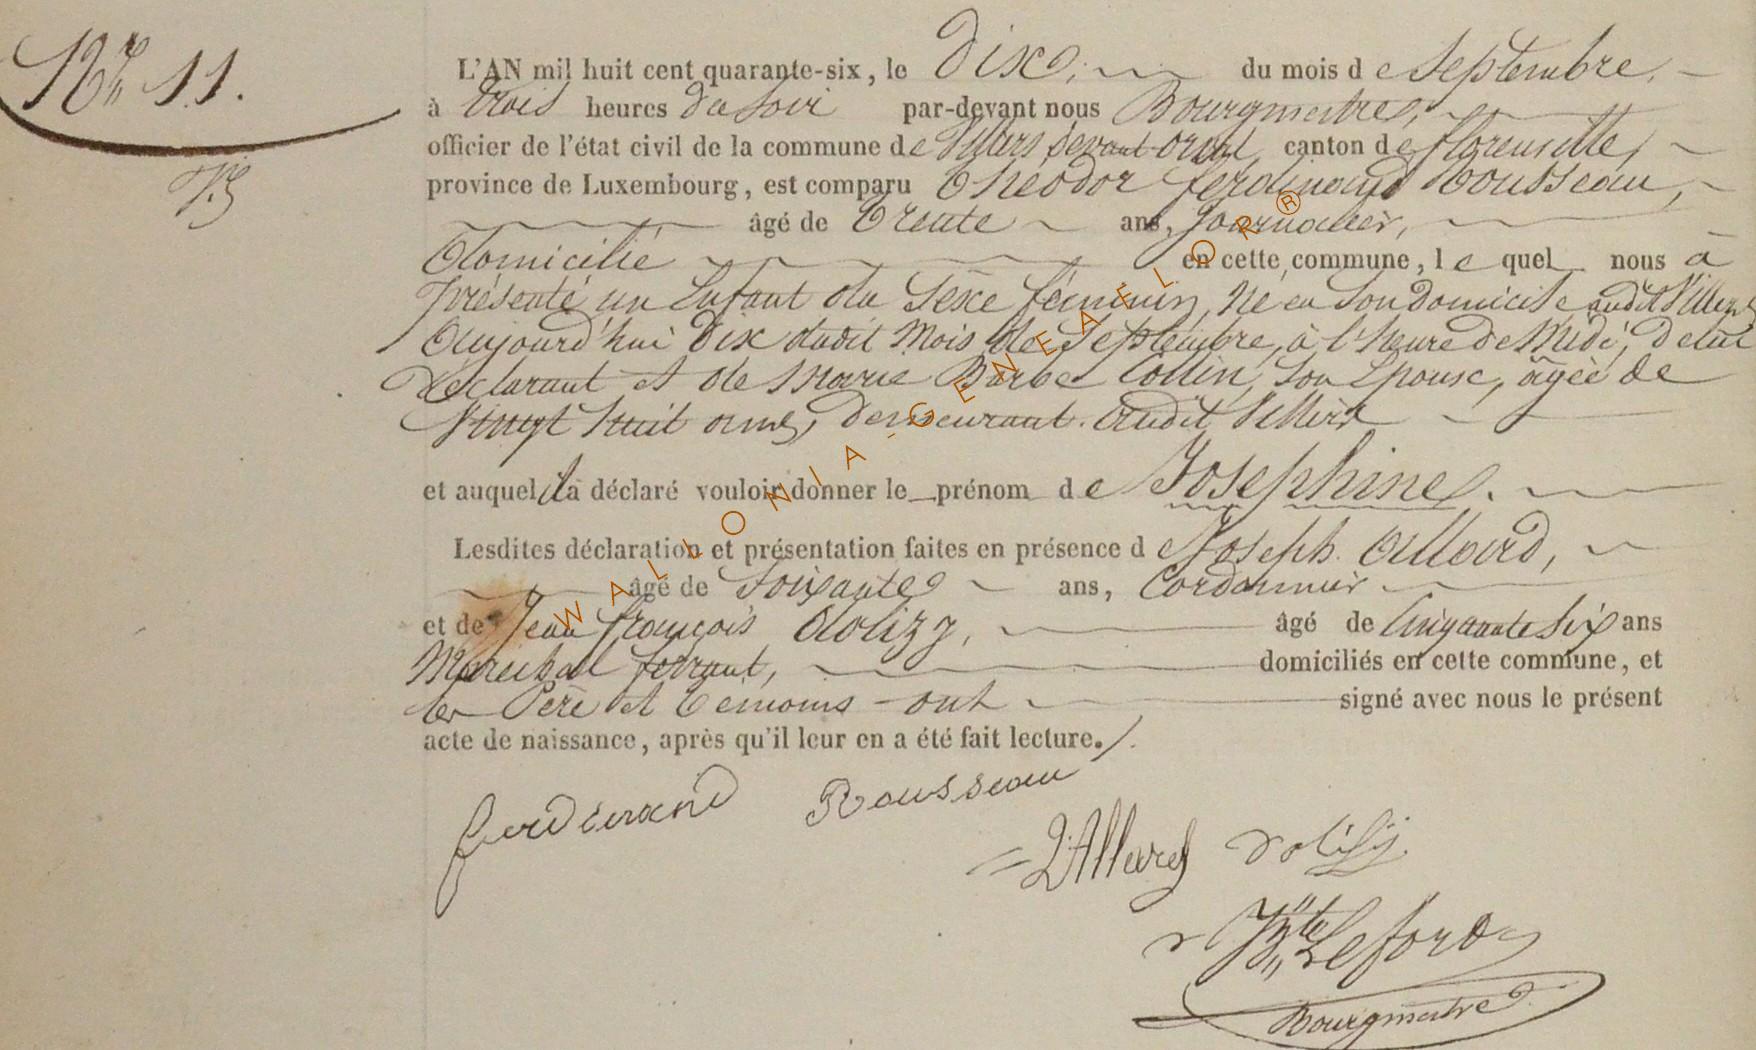 N° 11.
L'AN mil huit cent quarante-six, le Dix, du mois de Septembre,
à trois heures du Soir par-devant nous Bourgmestre,
officier de l'état civil de la commune de Villers devant orval canton de florenville,
province de Luxembourg, est comparu Théodor ferdinand Rousseau,
âgé de Trente ans, Journalier,
Domicilié en cette commune, le quel nous à
présenté un Enfant du Sexe féminin, Né en Son Domicile audit Villers
Aujourd'hui Dix dudit Mois de Septembre, à l'heure de Midi, De lui
Déclarant et de Marie Barbe Collin, Son Epouse, âgée de
Vingt huit ans, demeurant audit Villers
et auquel il a déclaré vouloir donner le prénom de Josephine.
Lesdites déclaration et présentation faites en présence de Joseph Allard,
âgé de Soixante ans, Cordonnier
et de Jean françois dolizy, âgé de Cinquante Six ans
Marechal ferrant, domiciliés en cette commune, et
les Père et Témoins ont signé avec nous le présent
acte de naissance, après qu'il leur en a été fait lecture.
ferdinand Rousseau
Allard dolizy
Lefort
Bourgmestre
WALLONIA-GENEAFLOR®